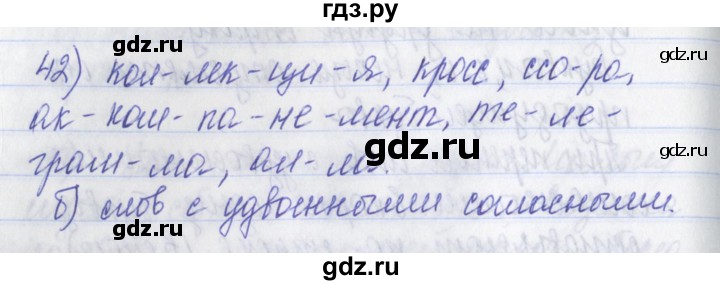 гдз.ру
gdz.ru gdz.ru
42) кол-лек-ци-я, кросс, ссо-ра,
ак-ком-па-не-мент, те-ле-
gdz.ru
грам-ма, ал-ло.
б) слов с удвоенными согласными.
gdz.ru gdz.ru
gdz.ru